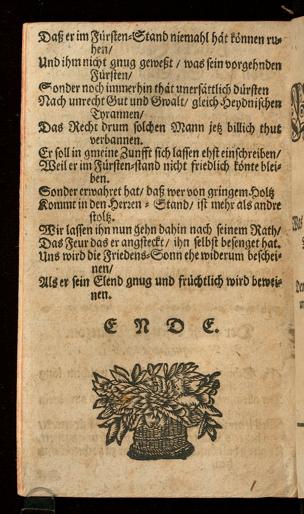 Daß er im Fürsten-Stand niemahl hat können ru-
hen/
Und ihm nicht gnug geweßt / was sein vorgehnden
Fürsten/
Sonder noch immerhin thät unersättlich dürsten
Nach unrecht Gut und Gwalt/ gleich Heydnischen
Tyrannen/
Das Recht drum solchen Mann jetz billich thut
verbannen.
Er soll in gmeine Zunfft sich lassen ehst einschreiben/
Weil er im Fürsten-stand nicht friedlich könte blei-
ben.
Sonder erwahret hat/ daß wer von gringem Holtz
Kommt in den Herren-Stand/ ist mehr als andre
stoltz.
Wir lassen ihn nun gehn dahin nach seinem Rath/
Das Feur das er angsteckt/ ihn selbst besenget hat.
Uns wird die Friedens-Sonn ehe widerum beschei-
nen/
Als er sein Elend gnug und früchtlich wird bewei-
nen.
ENDE.